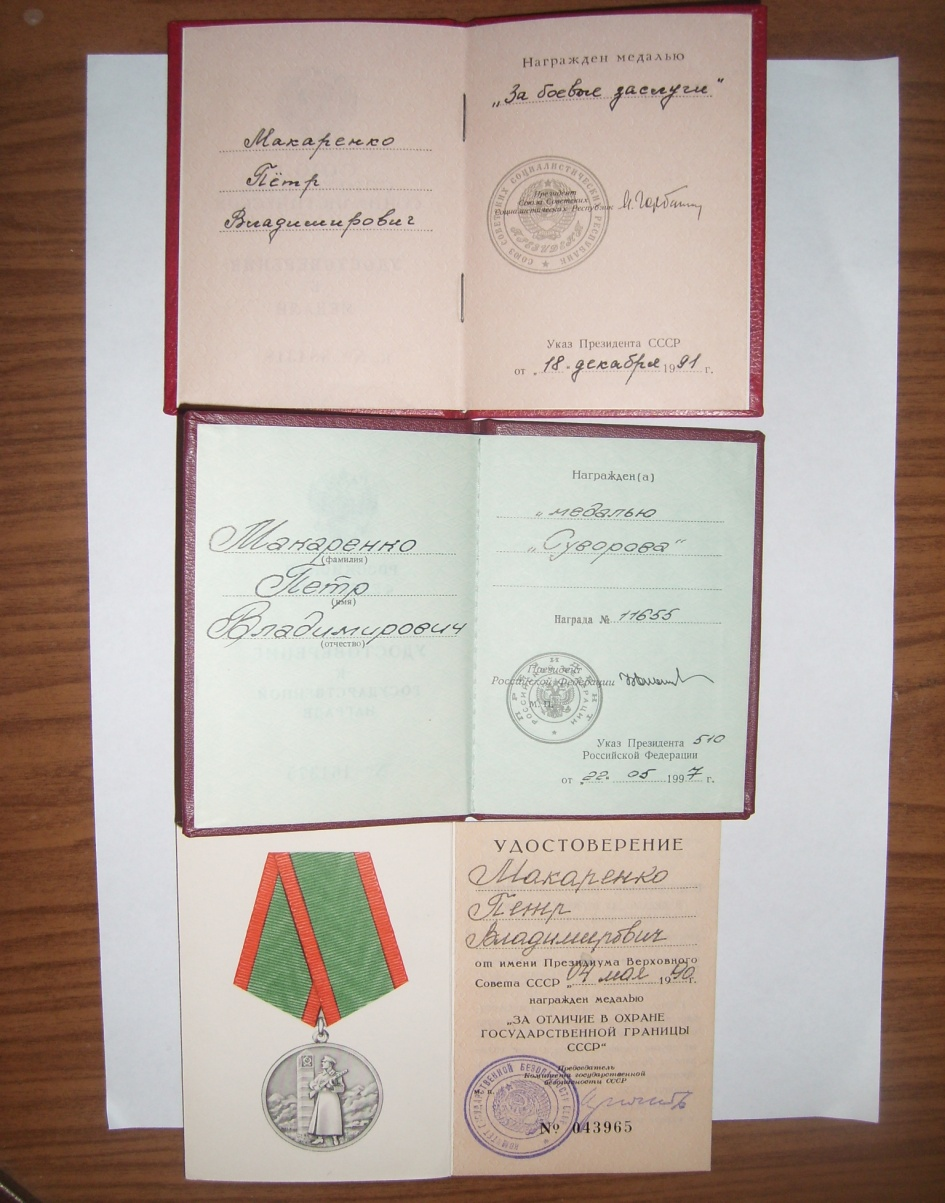 Макаренко
Пётр
Владимирович
Награжден медалью
„За боевые заслуги"
СОЮЗ СОВЕТСКИХ СОЦИАЛИСТИЧЕСКИХ РЕСПУБЛИК
ПРЕЗИДЕНТ
Президент
Союза Советских
Социалистических Республик
Указ Президента СССР
от „18" декабря 1991 г.
Макаренко
(фамилия)
Петр
(имя)
Владимирович
(отчество)
Награжден(а)
„медалью
„Суворова"
Награда № 11655
Президент
Российской Федерации
М. П.
Указ Президента 510
Российской Федерации
от „22" 05 1997 г.
УДОСТОВЕРЕНИЕ
Макаренко
Петр
Владимирович
от имени Президиума Верховного
Совета СССР „04 мая 1990 г.
награжден медалью
„ЗА ОТЛИЧИЕ В ОХРАНЕ
ГОСУДАРСТВЕННОЙ ГРАНИЦЫ
СССР"
Председатель
Комитета государственной
безопасности СССР
№ 043965